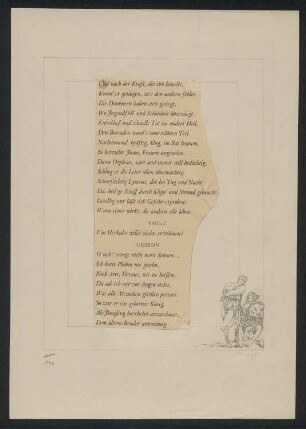 Und nach der Kraft, die ihn beseelt.
Konnt' er genügen, wo's den andern fehlte.
Die Dioskuren haben stets gesiegt,
Wo Jugendfüll' und Schönheit überwiegt.
Entschluß und schnelle Tat zu andrer Heil,
Den Boreaden ward's zum schönen Teil.
Nachsinnend, kräftig, klug, im Rat bequem,
So herrschte Jason, Frauen angenehm.
Dann Orpheus, zart und immer still bedächtig,
Schlug er die Leier allen übermächtig.
Scharfsichtig Lynceus, der bei Tag und Nacht
Das heil'ge Schiff durch Klipp' und Strand gebracht.
Gesellig nur läßt sich Gefahr erproben:
Wenn einer wirkt, die andern alle loben.
FAUST
Von Herkules willst nichts erwähnen?
CHIRON
O weh! errege nicht mein Sehnen...
Ich hatte Phöbus nie gesehn,
Noch Ares, Hermes, wie sie heißen,
Da sah ich mir vor Augen stehn,
Was alle Menschen göttlich preisen.
So war er ein geborner König,
Als Jüngling herrlichst anzuschauen;
Dem ältern Bruder untertänig